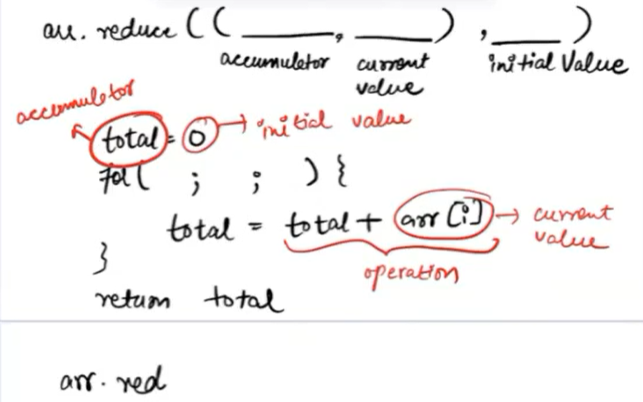 arr. reduce ( ( ____, ____ ) , ____ )
accumulator current value initial Value
accumulator
total = 0 → initial value
for( ; ; ) {
total = total + arr [i] → current value
operation
}
return total
arr. red